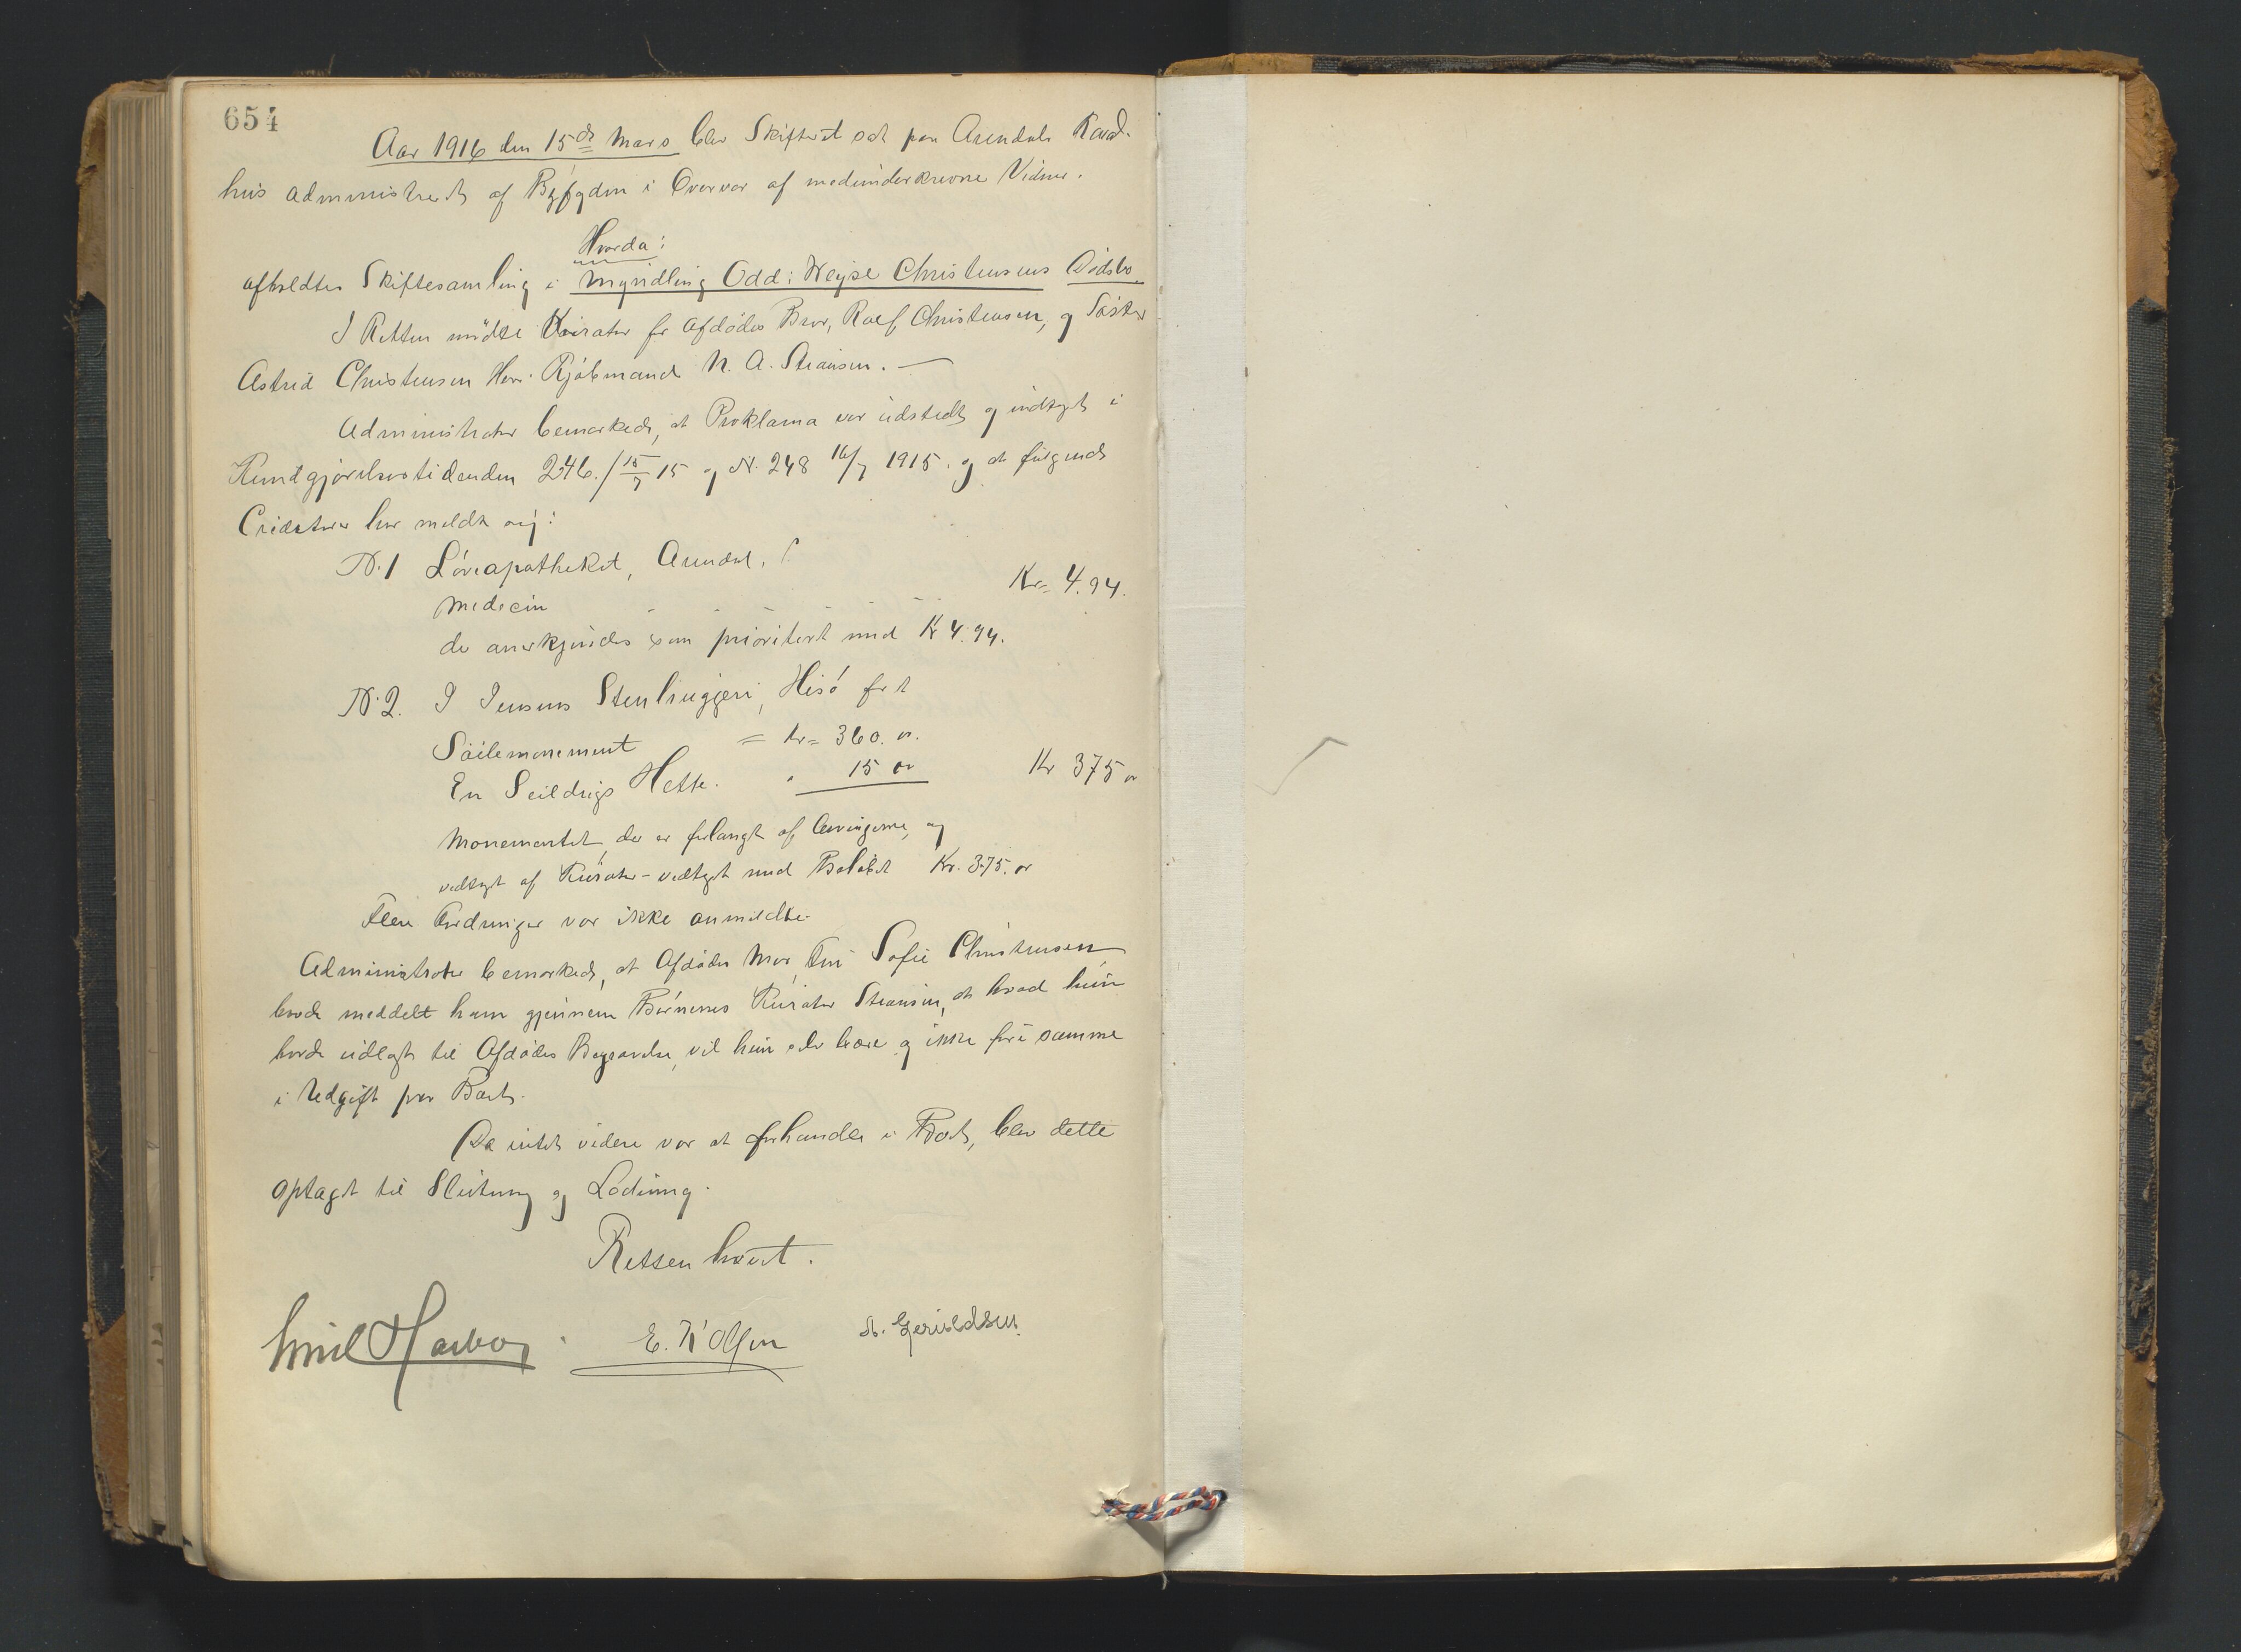 654
Aar 1916 den 15de Mars blev Skifteret sat paa Arendals Raad-
hus administreret af Byfogden i Overvær af medunderskrevne Vidner.
Hvorda:
afholdtes Skiftesamling i Myndling Odd Christensens Dødsbo
I Retten mødte Kurator for Afdødes Bror, Rolf Christensen, og Søster
Astrid Christensen Herr Kjøbmand N. A. Stiansen. —
Administrator bemærkede, at Proklama var udstedt og indtaget i
Kundgjørelsestidenden 246./15/7 15 og N. 248 16/7 1915. og at følgende
Creditorer har meldt sig:
N. 1 Løveapotheket, Arendal,
Medecin - - - - - - Kr= 4.94.
der anerkjendes som prioritert med Kr 4.94.
N. 2. I Jensens Stenhuggeri, Hisø for et
Søilemonement = kr= 360. or.
En Hette. " 15 or Kr 375 or
Monementet, der er forlangt af Arvingerne, og
vedtaget af Kurator - vedtaget med Beløbet Kr. 375. or
Flere Fordringer var ikke anmeldte.
Administrator bemærkede, at Afdødes Mor, Fru Sofie Christensen
havde meddelt ham gjennem Børnenes Kurator Stiansen, at hvad hun
havde udlagt til Afdødes Begravelse, vil hun selv bære og ikke føre samme
i Udgift paa Boet.
Da intet videre var at forhandle i Boet, blev dette
optaget til Slutning og Lodning.
Retten hævet.
Emil Harboe. E. K Olsen